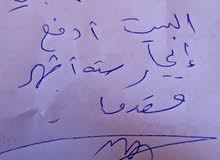 البيت أدفع
إيجار ستة أشهر
مقدما